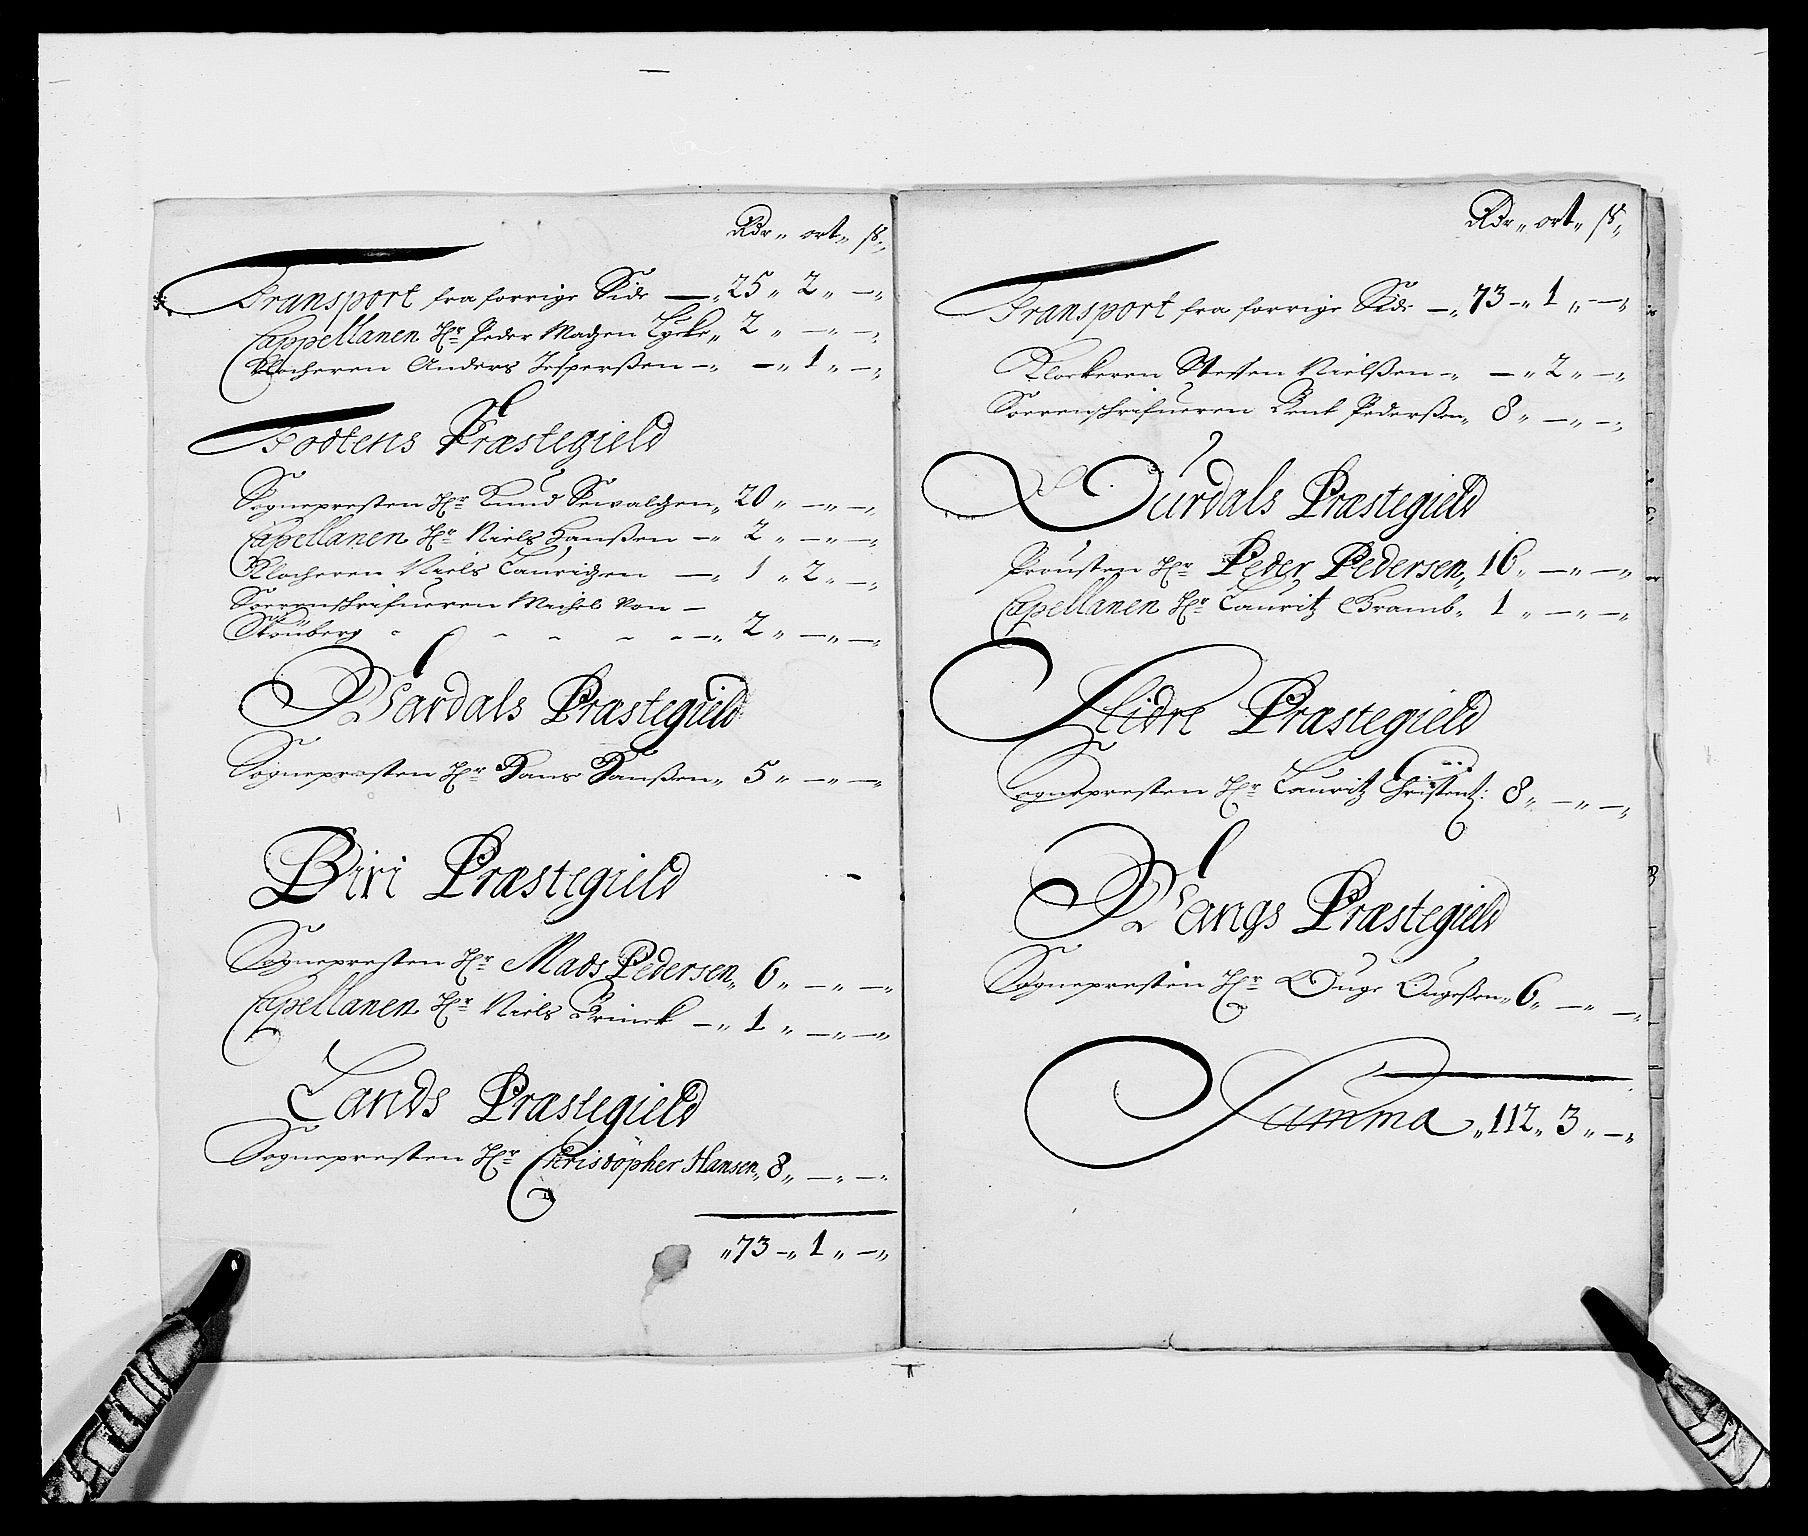 Rdr„ ort„ ß„
Transport fra forrige Side —„ 25„ 2„ —„
Cappellanen Hr Peder Madzen Lycke„ 2„ —„ —„
Klocheren Anders Jesperßen —„ —„ 1„ —„
Todtens Præstegield
Sognepresten Hr Knud Sevaldzen„ 20„ —„ —„
Capellanen Hr Niels Hanßen —„ 2„ —„ —„
Klocheren Niels Lauridzen —„ 1„ 2„ —„
Sorrenschrifueren Michel Von —
Strüberg - - - - - - —„ 2„ —„ —„
Wardals Præstegield
Sognepresten Hr Hans Hanßen„ 5„ —„ —„
Biri Præstegield
Sognepresten Hr Mads Pedersen„ 6„ —„ —„
Capellanen Hr Niels Brinck —„ 1„ —„ —„
Lands Præstegield
Sognepresten Hr Christopher Hansen„ 8„ —„ —„
„73 —„ 1„ —„
Rdr„ ort„ ß„
Transport fra forrige Side —„ 73 —„ 1„ —„
Klockeren Steffen Nielßen —„ —„ 2„ —„
Sorrenschrifueren Bent Pederßen„ 8„ —„ —„
Ourdals Præstegield
Prousten Hr Peder Pedersen„ 16„ —„ —„
Capellanen Hr Lauritz Bramb„ 1„ —„ —„
Slidre Præstegield
Sognepresten Hr Lauritz Christentz: 8„ —„ —„
Wangs Præstegield
Sognepresten Hr Ouge Ougeßen„ 6„ —„ —„
Summa „112„ 3„ —„